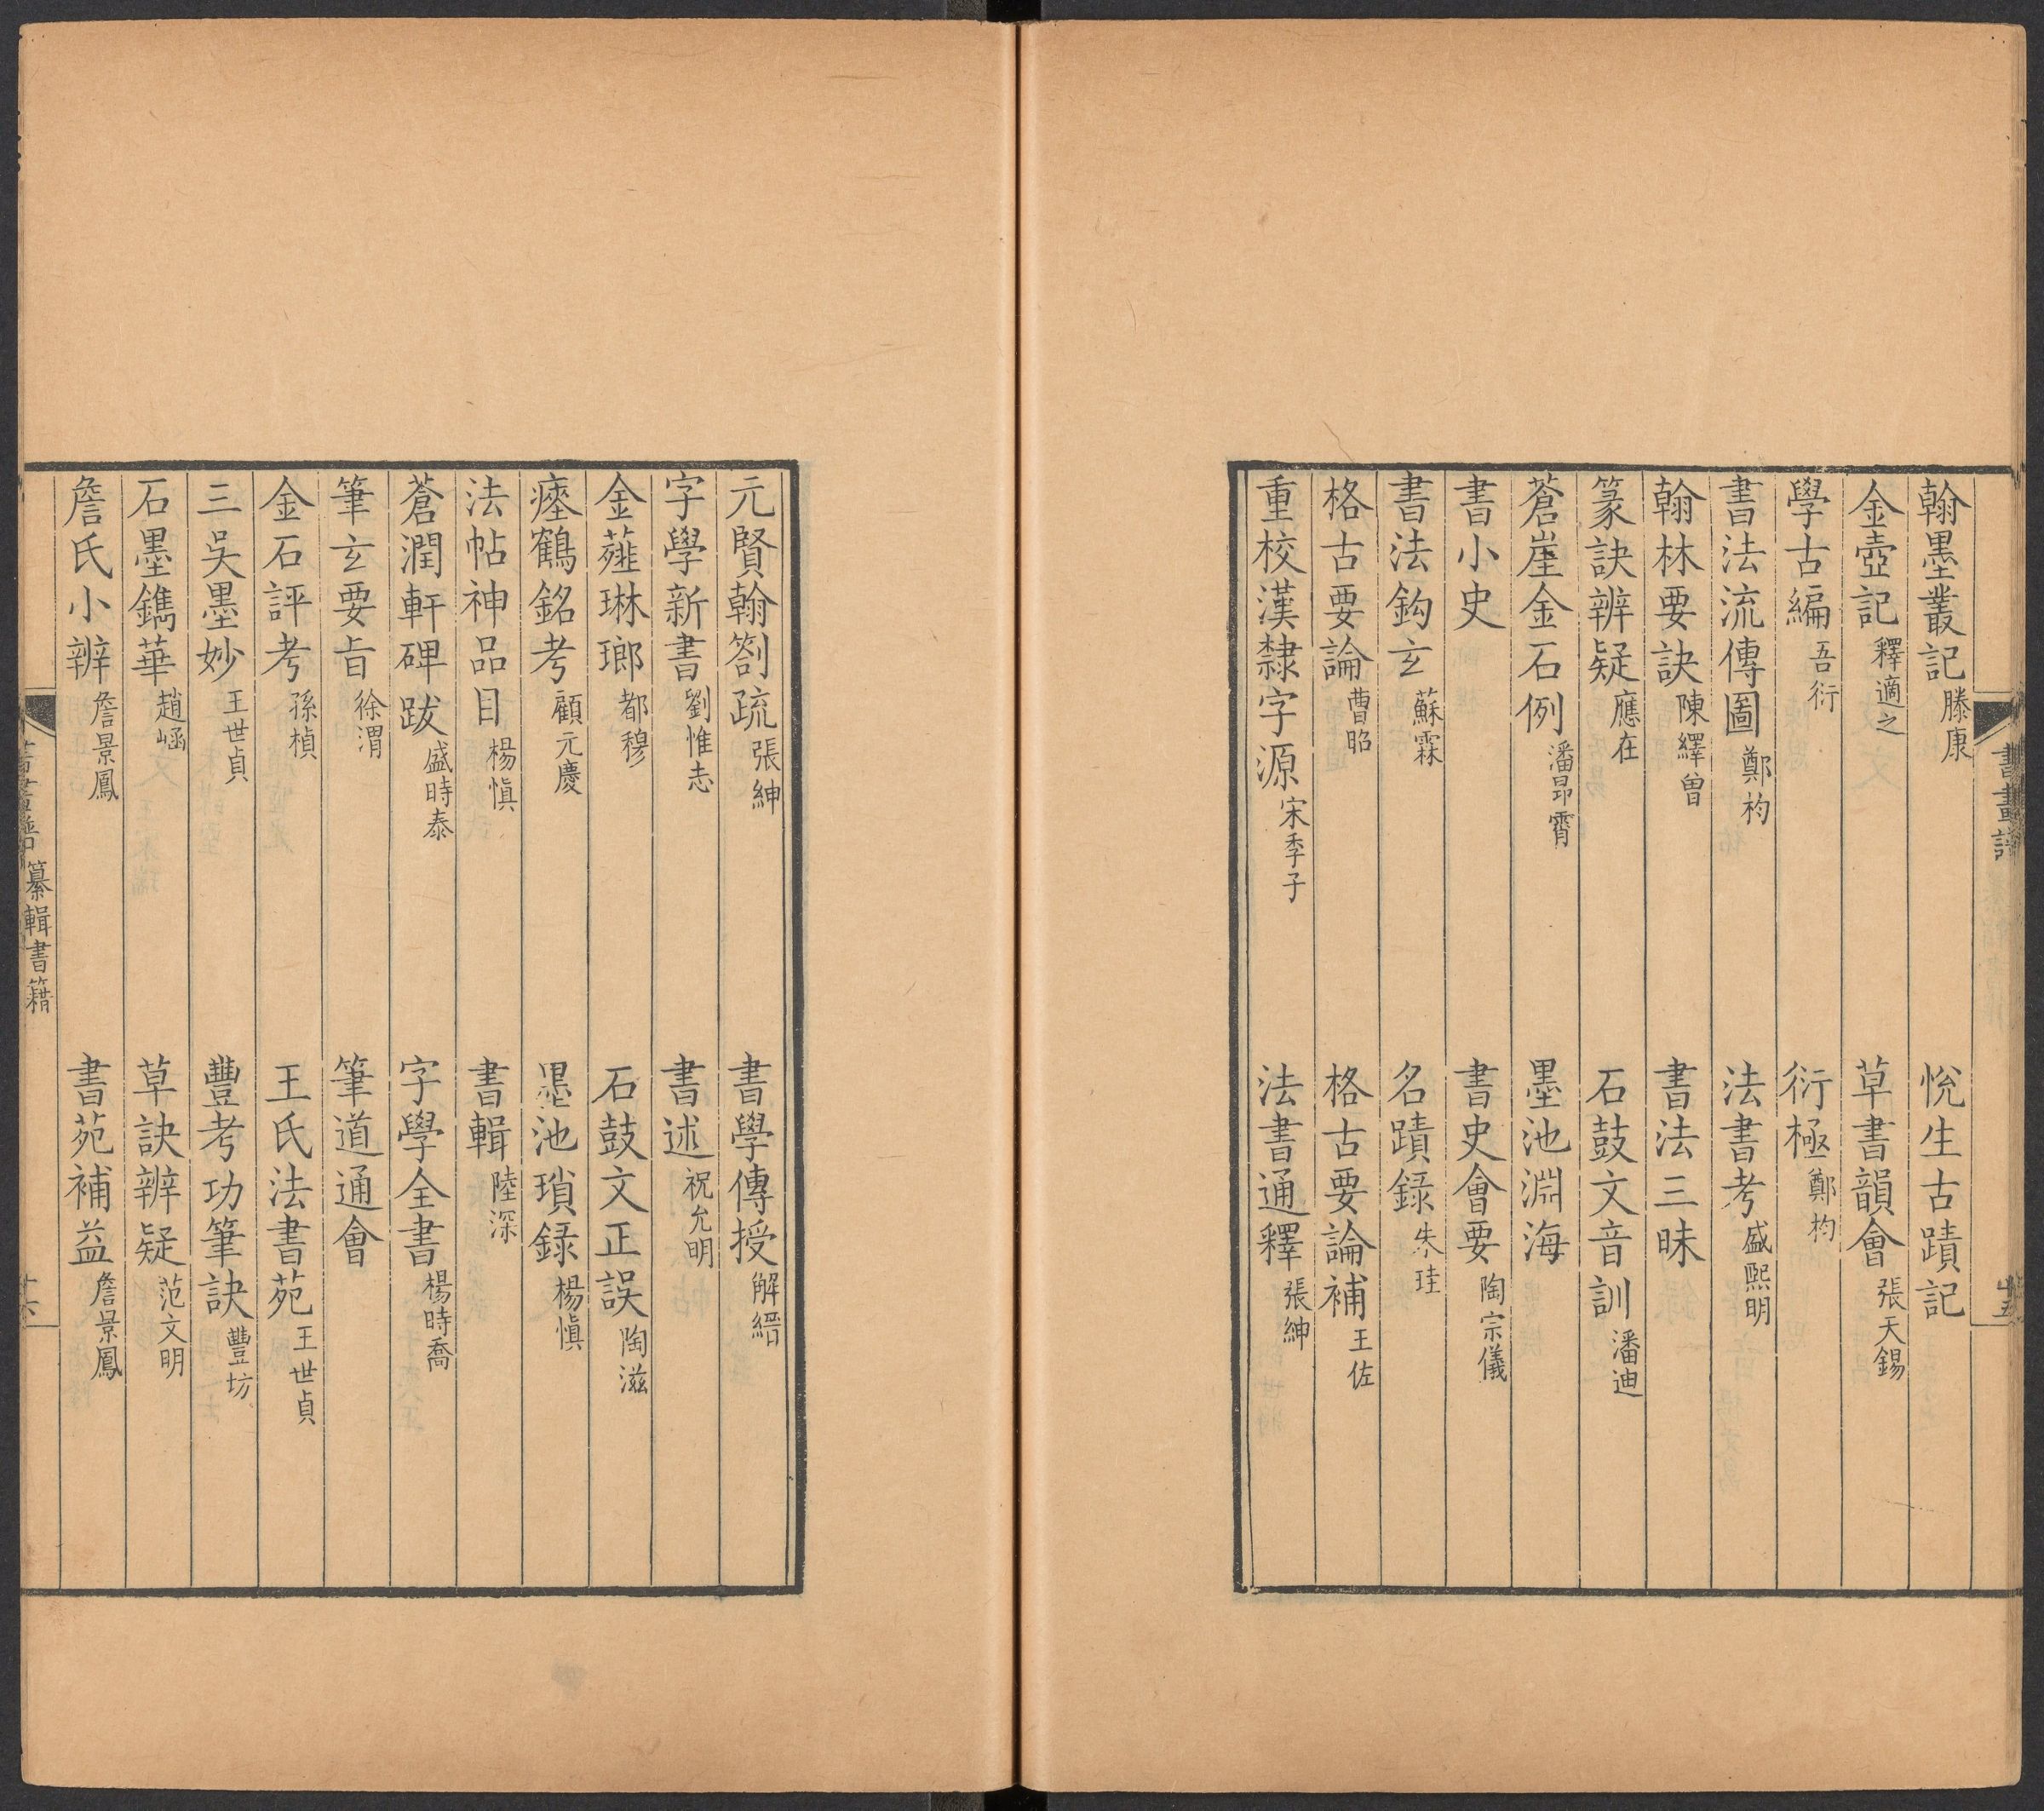 翰墨叢記 滕康 悅生古蹟記
金壺記 釋適之 草書韻會 張天錫
學古編 吾衍 衍極 鄭杓
書法流傳圖 鄭杓 法書考 盛熙明
翰林要訣 陳繹曾 書法三昧
篆訣辨疑 應在 石鼓文音訓 潘迪
蒼崖金石例 潘昂霄 墨池淵海
書小史 書史會要 陶宗儀
書法鈎玄 蘇霖 名蹟錄 朱珪
格古要論 曹昭 格古要論補 王佐
重校漢隸字源 宋季子 法書通釋 張紳
書畫譜
元賢翰劄疏 張紳 書學傳授 解縉
字學新書 劉惟志 書述 祝允明
金薤琳瑯 都穆 石鼓文正誤 陶滋
瘞鶴銘考 顧元慶 墨池瑣録 楊慎
法帖神品目 楊慎 書輯 陸深
蒼潤軒碑跋 盛時泰 字學全書 楊時喬
筆玄要旨 徐渭 筆道通會
金石評考 孫楨 王氏法書苑 王世貞
三吳墨妙 王世貞 豐考功筆訣 豐坊
石墨鐫華 趙崡 草訣辨疑 范文明
詹氏小辨 詹景鳳 書苑補益 詹景鳳
纂輯書籍